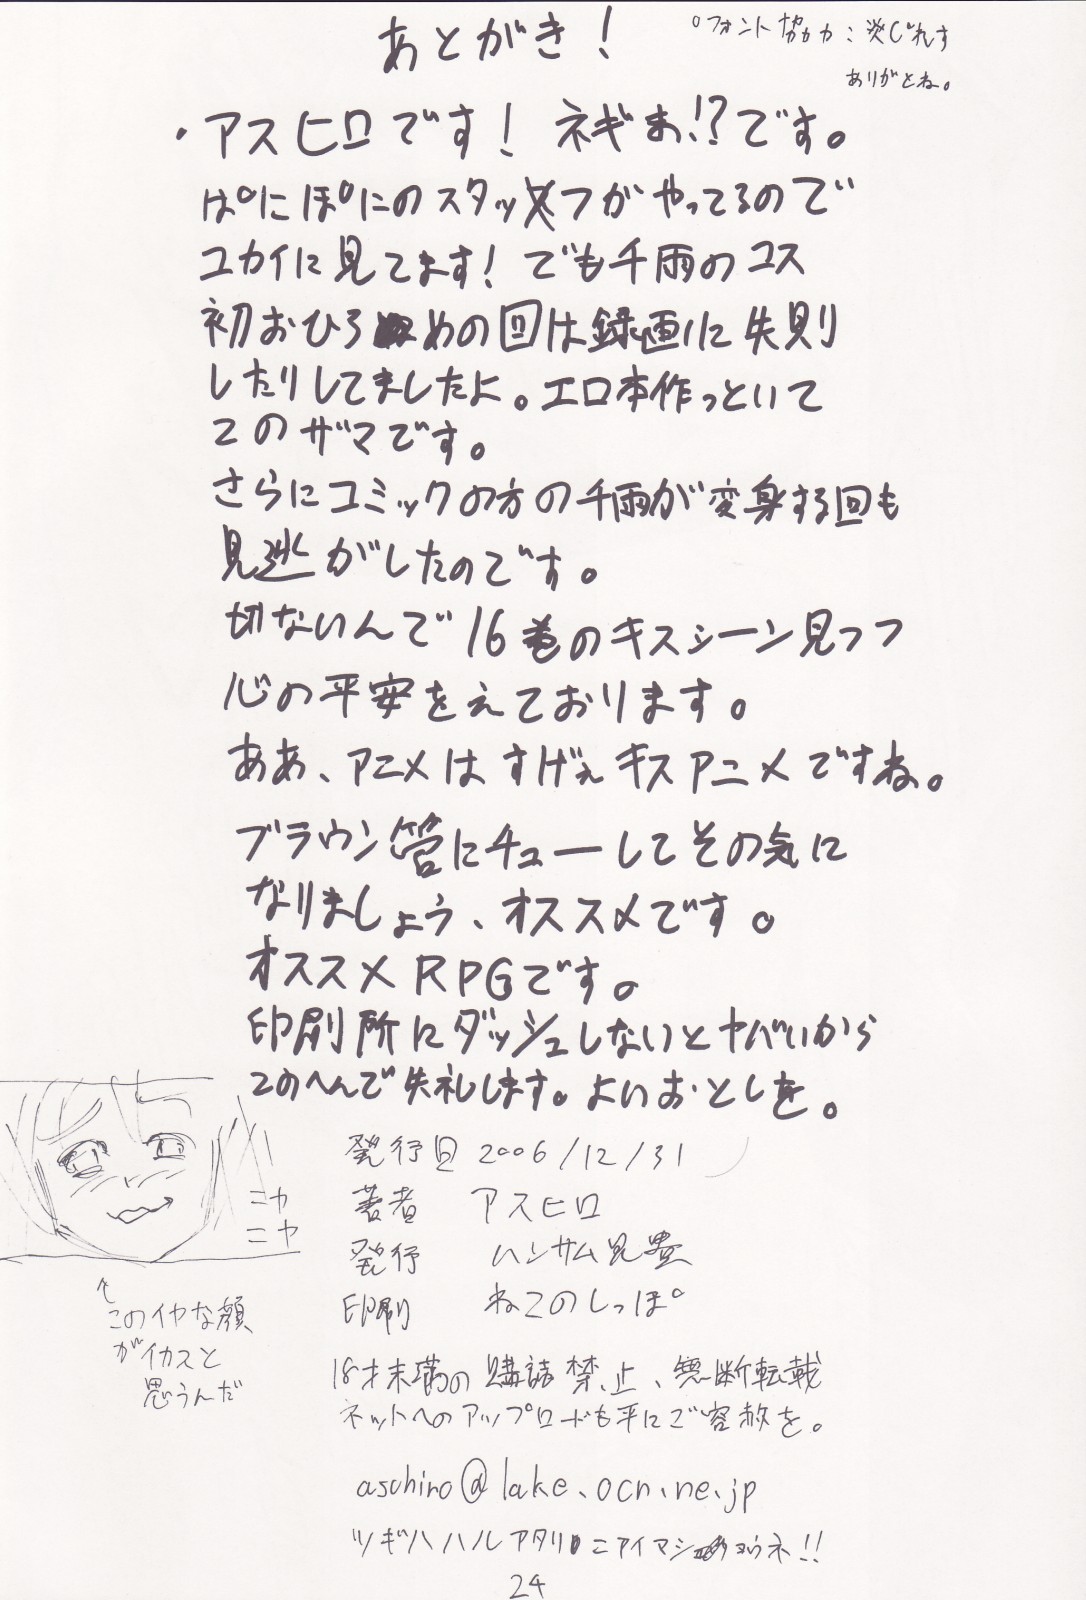 あとがき！
○フォント協力：炎じれす
ありがとね。
・アスヒロです！ ネギま!?です。
ぱにぽにのスタッフがやってるので
ユカイに見てます！でも千雨のコス
初おひろめの回は録画に失則
したりしてましたよ。エロ本作っといて
このザマです。
さらにコミックの方の千雨が変身する回も
見逃がしたのです。
切ないんで16巻のキスシーン見つつ
心の平安をえております。
ああ、アニメはすげぇキスアニメですね。
ブラウン管にチューしてその気に
なりましょう、オススメです。
オススメRPGです。
印刷所にダッシュしないとヤバいから
このへんで失礼します。よいおとしを。
ニヤ
ニヤ
↑
このイヤな顔
がイカスと
思うんだ
発行日 2006/12/31
著者 アスヒロ
発行 ハンサム兄貴
印刷 ねこのしっぽ
18才未満の購読禁止、無断転載
ネットへのアップロードも平にご容赦を。
aschiro@lake.ocn.ne.jp
ツギハハルアタリニアイマショウネ!!
24